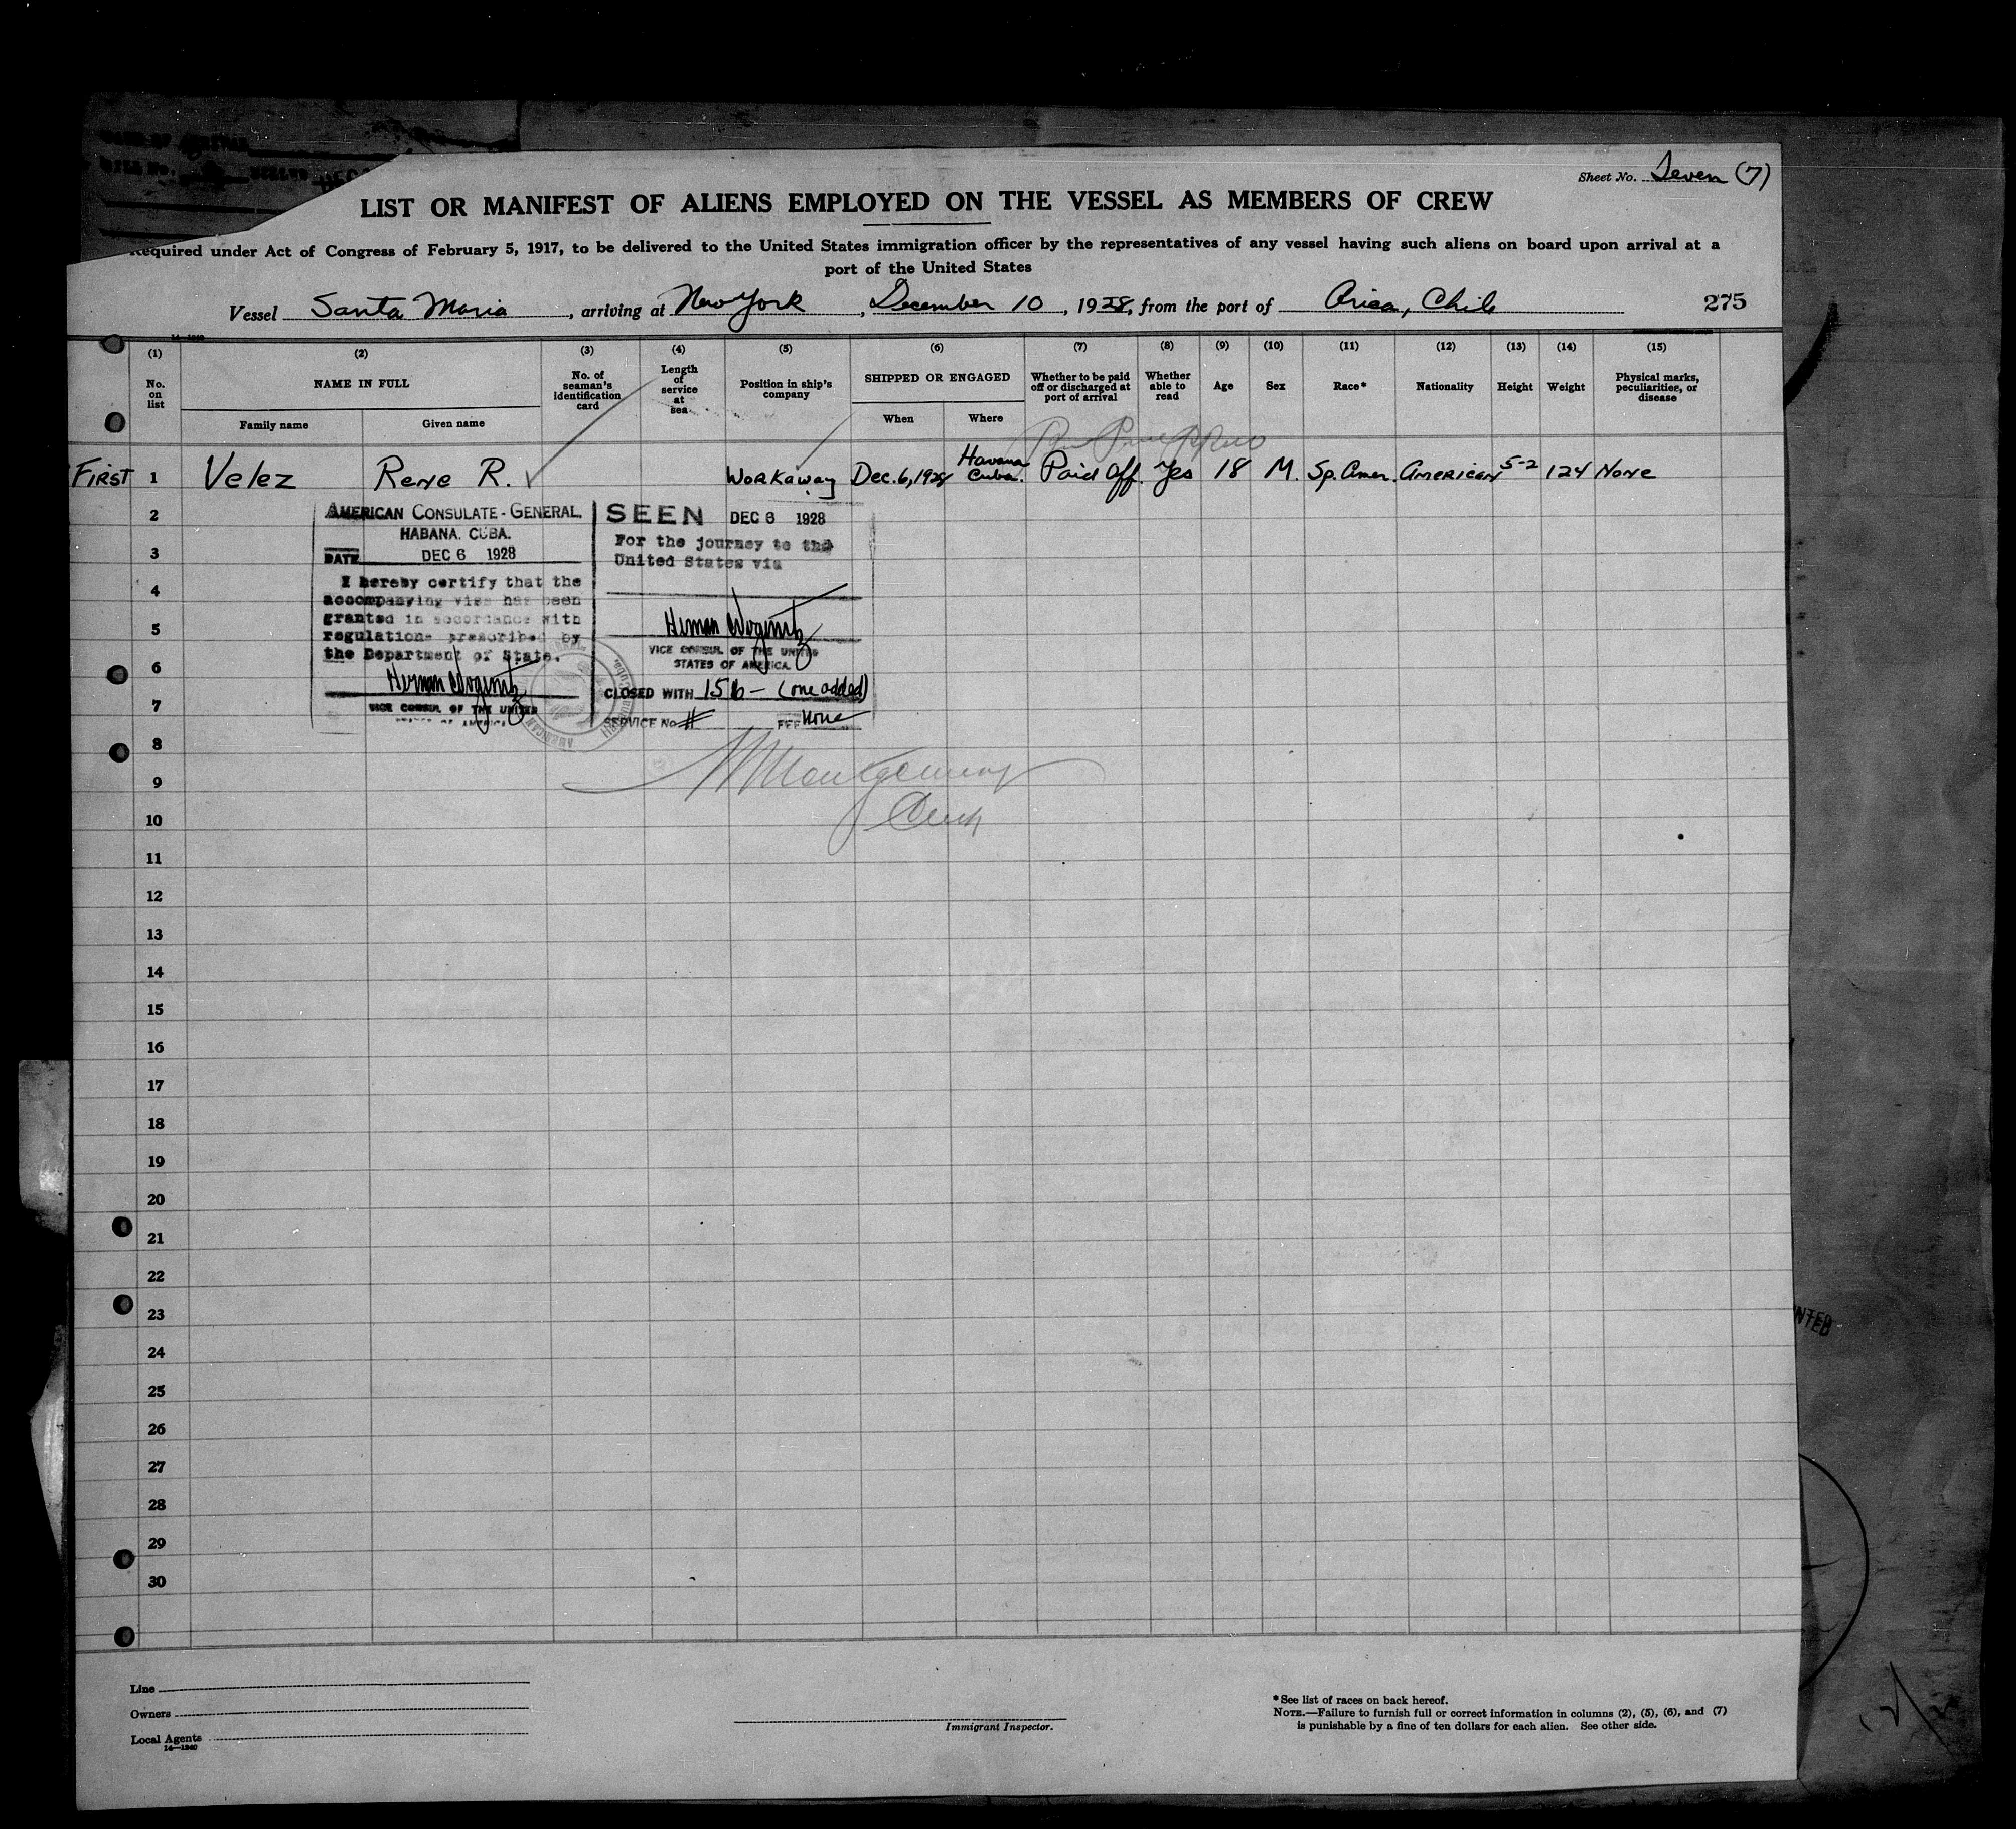 Sheet No. Seven (7)
LIST OR MANIFEST OF ALIENS EMPLOYED ON THE VESSEL AS MEMBERS OF CREW
Required under Act of Congress of February 5, 1917, to be delivered to the United States immigration officer by the representatives of any vessel having such aliens on board upon arrival at a
port of the United States
Vessel Santa Maria, arriving at New York, December 10, 1928, from the port of Arica, Chile 275
14—1240
(1) (2) (3) (4) (5) (6) (7) (8) (9) (10) (11) (12) (13) (14) (15)
No. on list
NAME IN FULL
Family name Given name
No. of seaman's identification card
Length of service at sea
Position in ship's company
SHIPPED OR ENGAGED
When Where
Whether to be paid off or discharged at port of arrival
Whether able to read
Age
Sex
Race*
Nationality
Height
Weight
Physical marks, peculiarities, or disease
FIRST 1 Velez Rene R. Workaway Dec. 6, 1928 Havana Cuba. Paid Off. Yes 18 M. Sp. Amer. American 5-2 124 None
2
3
4
5
6
7
8
9
10
11
12
13
14
15
16
17
18
19
20
21
22
23
24
25
26
27
28
29
30
AMERICAN CONSULATE-GENERAL.
HABANA. CUBA.
DATE DEC 6 1928
I hereby certify that the
accompanying visa has been
granted in accordance with
regulations prescribed by
the Department of State.
VICE CONSUL OF THE UNITED
STATES OF AMERICA
SEEN DEC 6 1928
For the journey to the
United States via
VICE CONSUL OF THE UNITED
STATES OF AMERICA.
CLOSED WITH (one added)
SERVICE No # FEE None
Montgomery
Line
Owners
Local Agents
14—1240
Immigrant Inspector.
*See list of races on back hereof.
NOTE.—Failure to furnish full or correct information in columns (2), (5), (6), and (7)
is punishable by a fine of ten dollars for each alien. See other side.